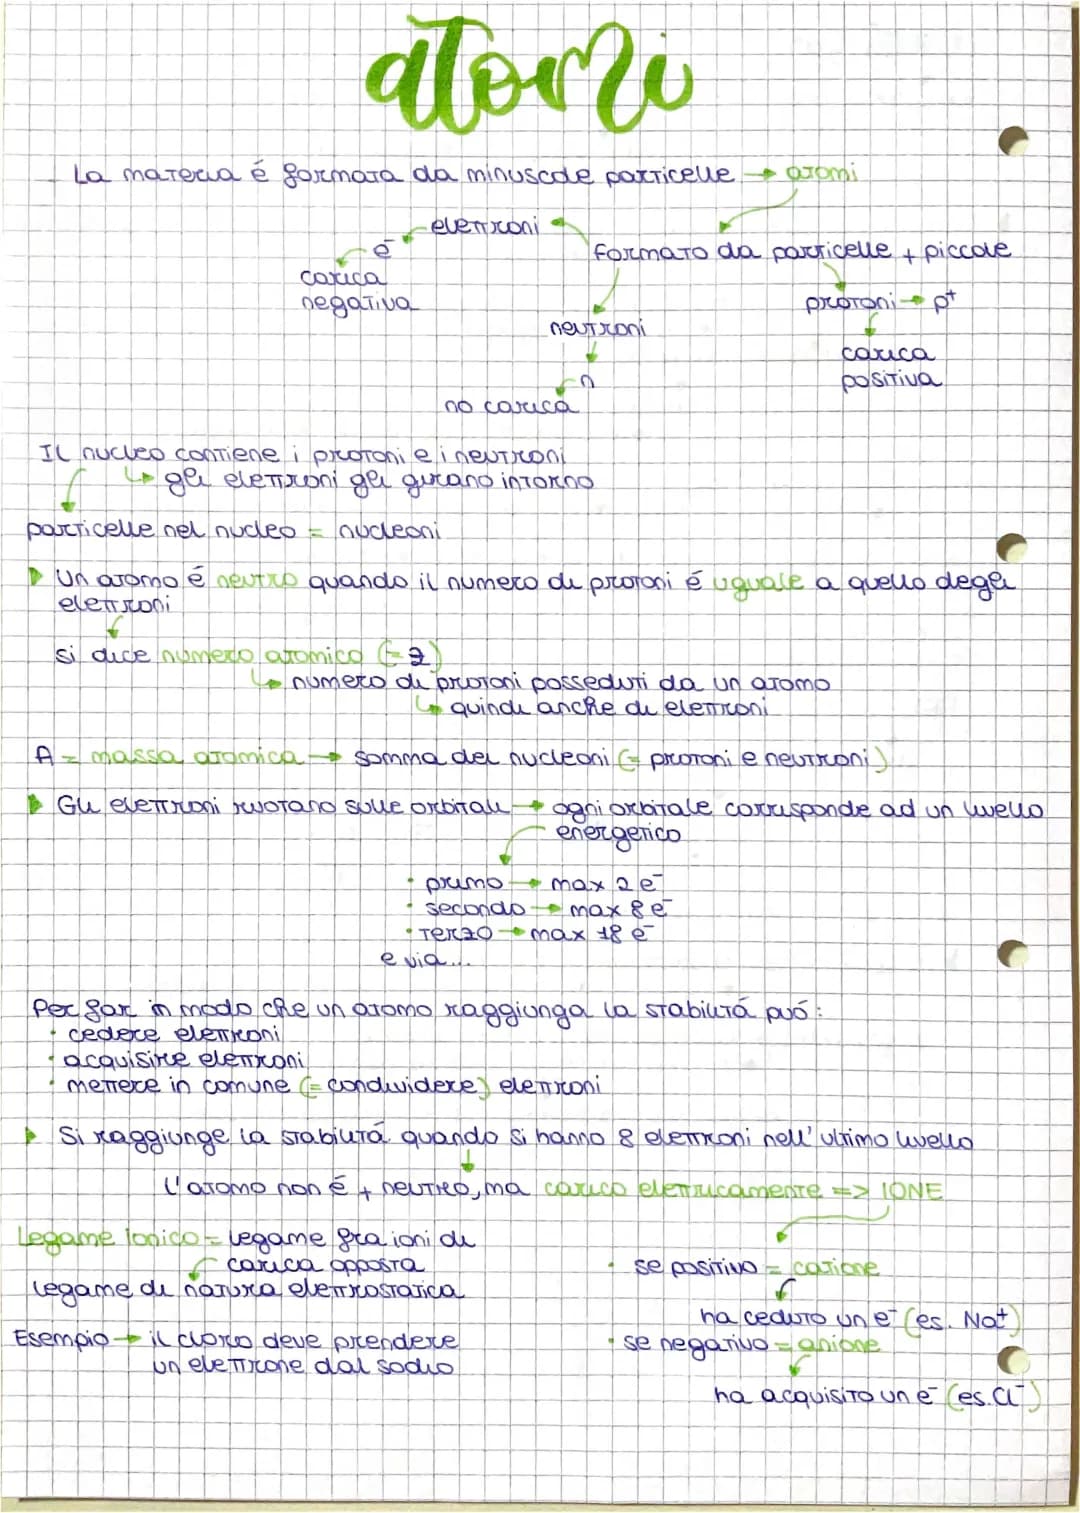 atomi
La materia é formata da minuscole particelle → atomi
elettroni
e⁻
formato da particelle + piccole
carica
negativa
protoni → p⁺
neutroni
carica
positiva
n
no carica
Il nucleo contiene i protoni e i neutroni
↳ gli elettroni gli girano intorno
particelle nel nucleo = nucleoni
▶ Un atomo é neutro quando il numero di protoni é uguale a quello degli
elettroni
si dice numero atomico (= Z)
↳ numero di protoni posseduti da un atomo
↳ quindi anche di elettroni
A = massa atomica → somma dei nucleoni (= protoni e neutroni)
▶ Gli elettroni ruotano sulle orbitali → ogni orbitale corrisponde ad un livello
energetico
• primo → max 2 e⁻
• secondo → max 8 e⁻
• terzo → max 18 e⁻
e via...
Per far in modo che un atomo raggiunga la stabilitá puó:
• cedere elettroni
• acquisire elettroni
• mettere in comune (= condividere) elettroni
▶ Si raggiunge la stabilitá quando si hanno 8 elettroni nell'ultimo livello
l'atomo non é + neutro, ma carico elettricamente => IONE
Legame Ionico = legame fra ioni di
carica opposta
legame di natura elettrostatica
Esempio → il cloro deve prendere
un elettrone dal sodio
• se positivo = catione
ha ceduto un e⁻ (es. Na⁺)
• se negativo = anione
ha acquisito un e⁻ (es. Cl⁻)